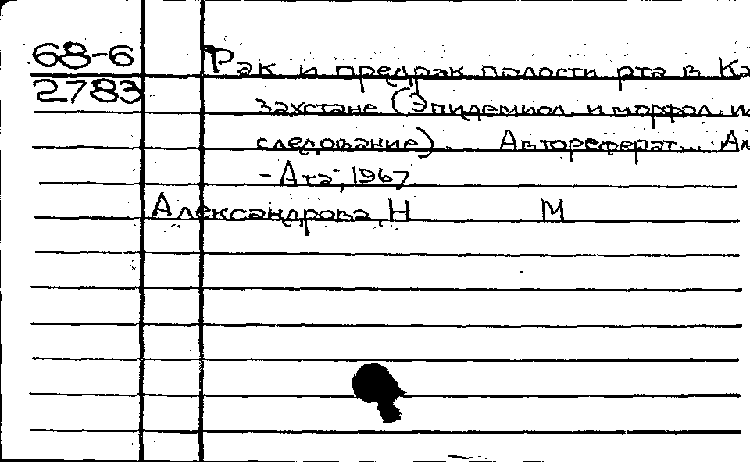 68-6 Рак и предрак полости рта в Ка
2783 захстане (Эпидемиол. и морфол. и
следование). Автореферат... Ал
-Ата, 1967
Александрова Н М